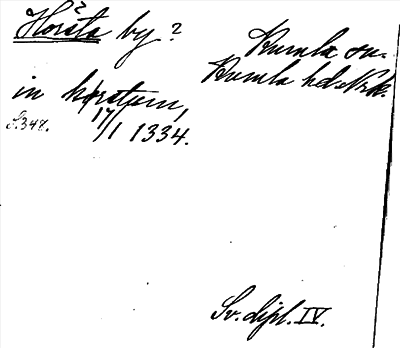 Horsta by?
Kumla sn.
Kumla hd. Nrk.
in horstum,
S. 348. 17/1 1334.
Sv. dipl. IV.